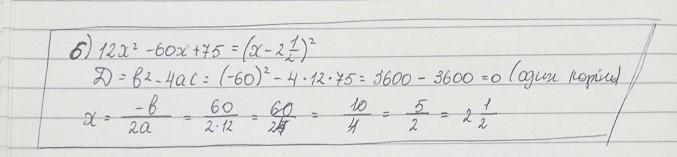 б) 12x² - 60x + 75 = (x - 2 1/2)²
D = b² - 4ac = (-60)² - 4·12·75 = 3600 - 3600 = 0 (один корінь)
x = -b/2a = 60/2·12 = 60/24 = 10/4 = 5/2 = 2 1/2